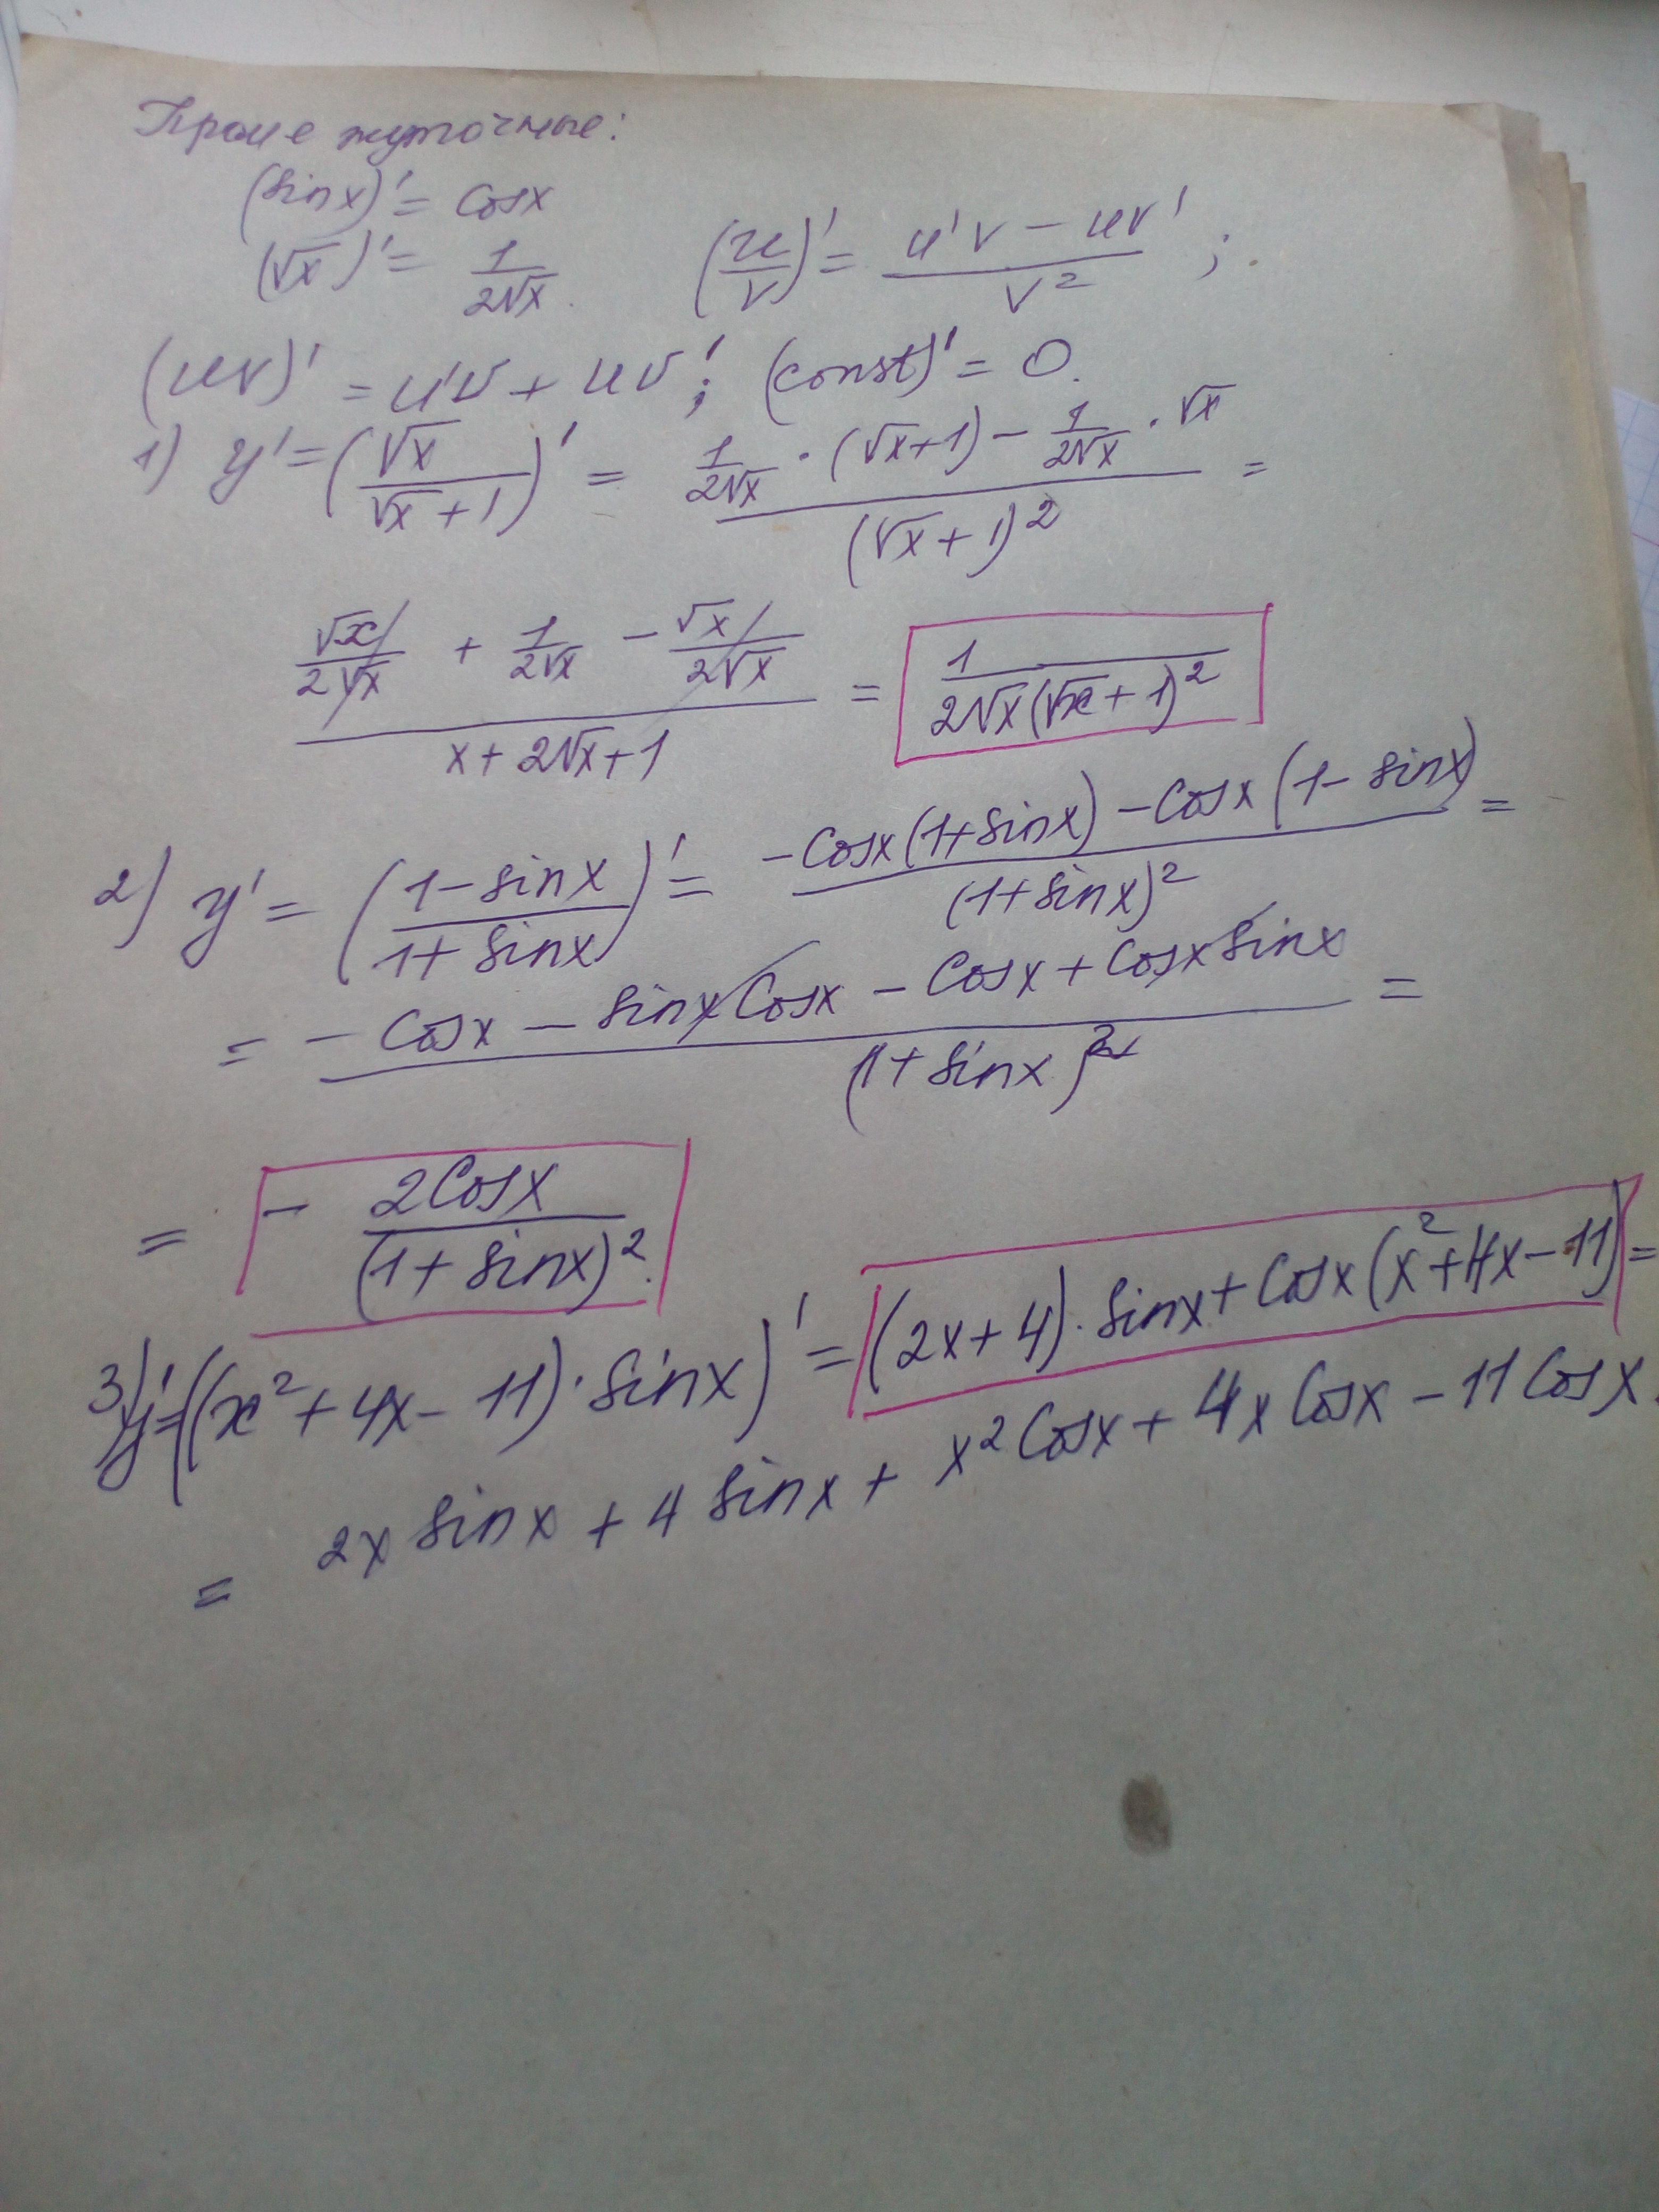 Промежуточные:
(sinx)' = cosx
(√x)' = 1/(2√x). (u/v)' = (u'v - uv')/v² ;
(uv)' = u'v + uv'; (const)' = 0.
1) y' = (√x/(√x+1))' = (1/(2√x) · (√x+1) - 1/(2√x) · √x)/(√x+1)² =
(√x/(2√x) + 1/(2√x) - √x/(2√x))/(x+2√x+1) = 1/(2√x(√x+1)²)
2) y' = ((1-sinx)/(1+sinx))' = (-cosx(1+sinx) - cosx(1-sinx))/(1+sinx)² =
= (-cosx - sinxcosx - cosx + cosxsinx)/(1+sinx)² =
= - 2cosx/(1+sinx)².
3) y' = ((x²+4x-11)·sinx)' = (2x+4)·sinx + cosx(x²+4x-11) =
= 2x sinx + 4 sinx + x²cosx + 4x cosx - 11cosx.